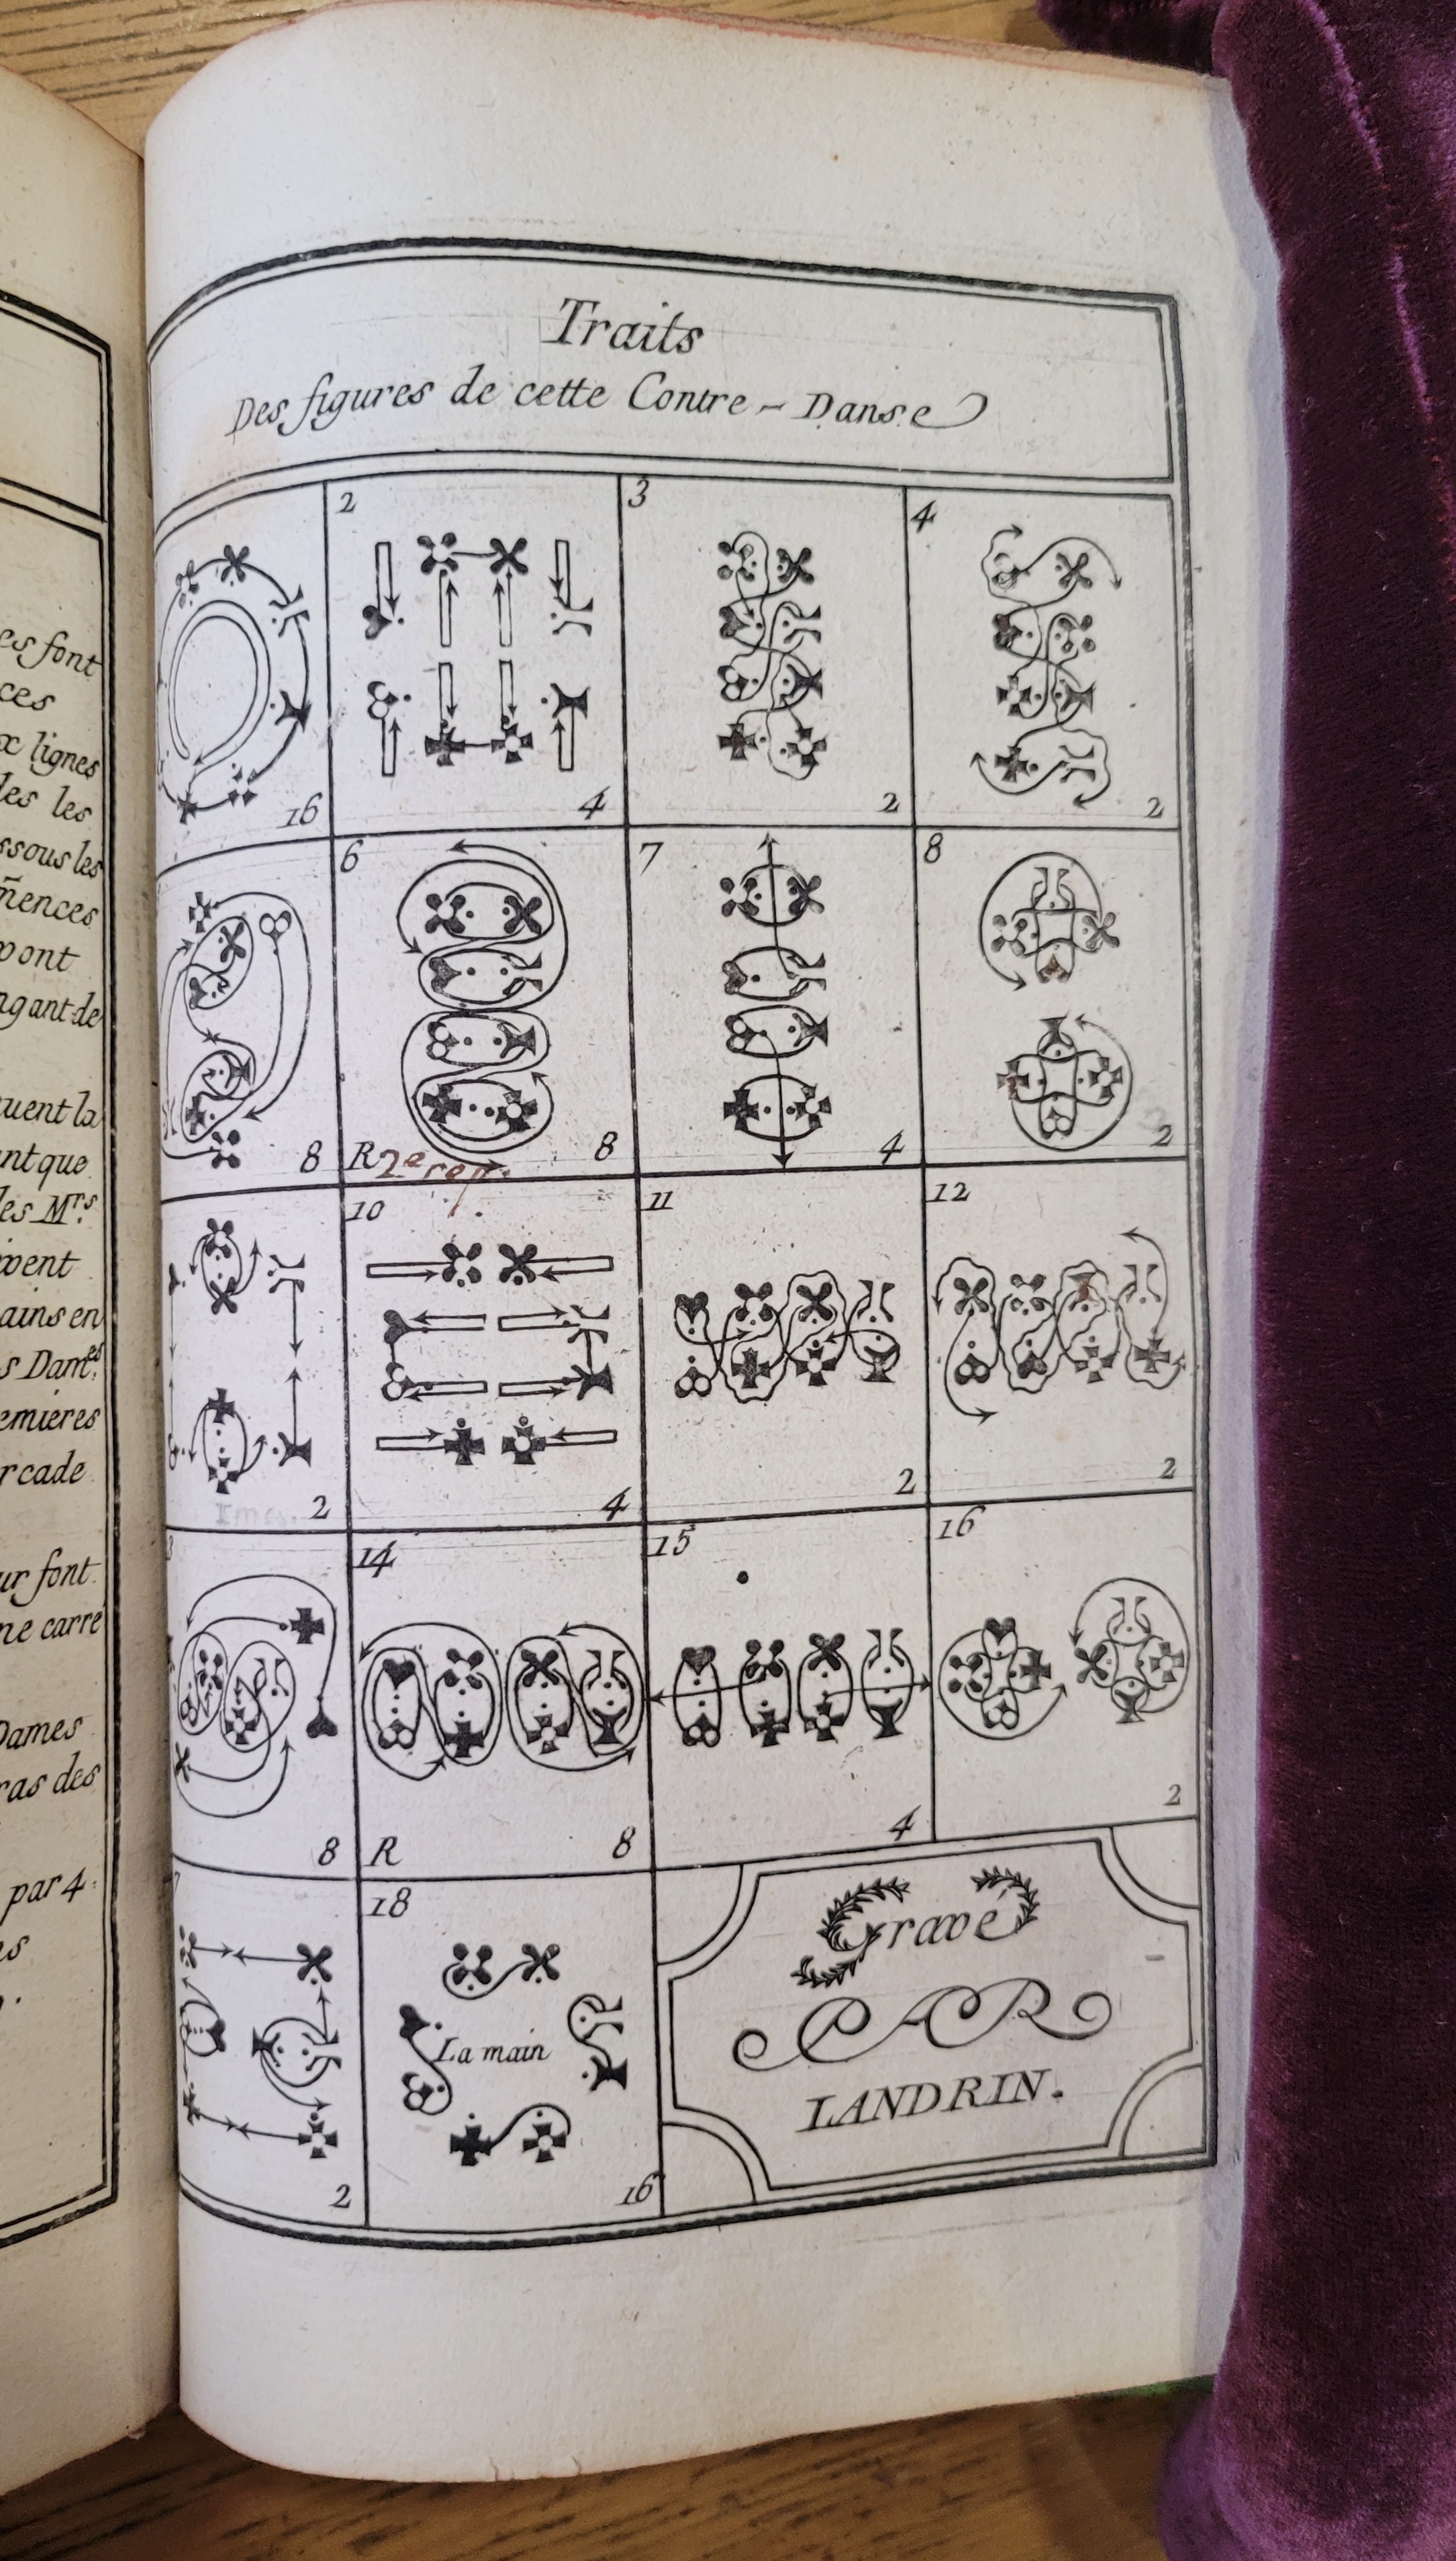 Traits
Des figures de cette Contre-Danse
es font
ces
x lignes
les les
ssous les
m̃ences
vont
ngant de
quent la
nt que
les Mrs.
vent
ains en
s Dames
emieres
rcade
ur font
ne carré
Dames
ras des
par 4
ns
16
2
4
3
2
4
2
8
6
R 2e rep.
8
7
4
8
2
2
10
4
11
2
12
2
8
14
R
8
15
4
16
2
2
18
La main
16
Gravé
PAR
LANDRIN.